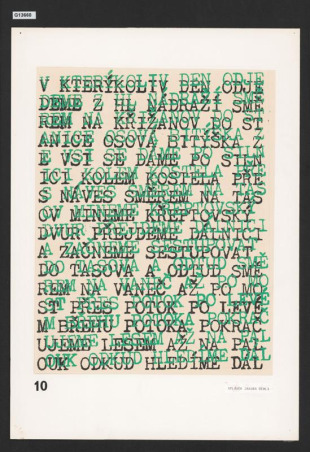 D13668
V KTERÝKOLIV DEN ODJE
DEME Z HL NÁDRAŽÍ SMĚ
REM NA KŘIŽANOV DO ST
ANICE OSOVÁ BITÝŠKA Z
E VSI SE DÁME PO SILN
ICI KOLEM KOSTELA
S NÁVES SMĚREM NA TAS
OV MINEME KŘEPTOVSKÝ
DVŮR PŘEJDEME DÁLNICI
A ZAČNEME SESTUPOVAT
DO TASOVA A ODTUD SMĚ
REM NA VANEČ AŽ PO MO
ST PŘES POTOK PO LEVÉ
M BŘEHU POTOKA POKRAČ
UJEME LESEM AŽ NA PAL
OUK ODKUD HLEDÍME DÁL
10